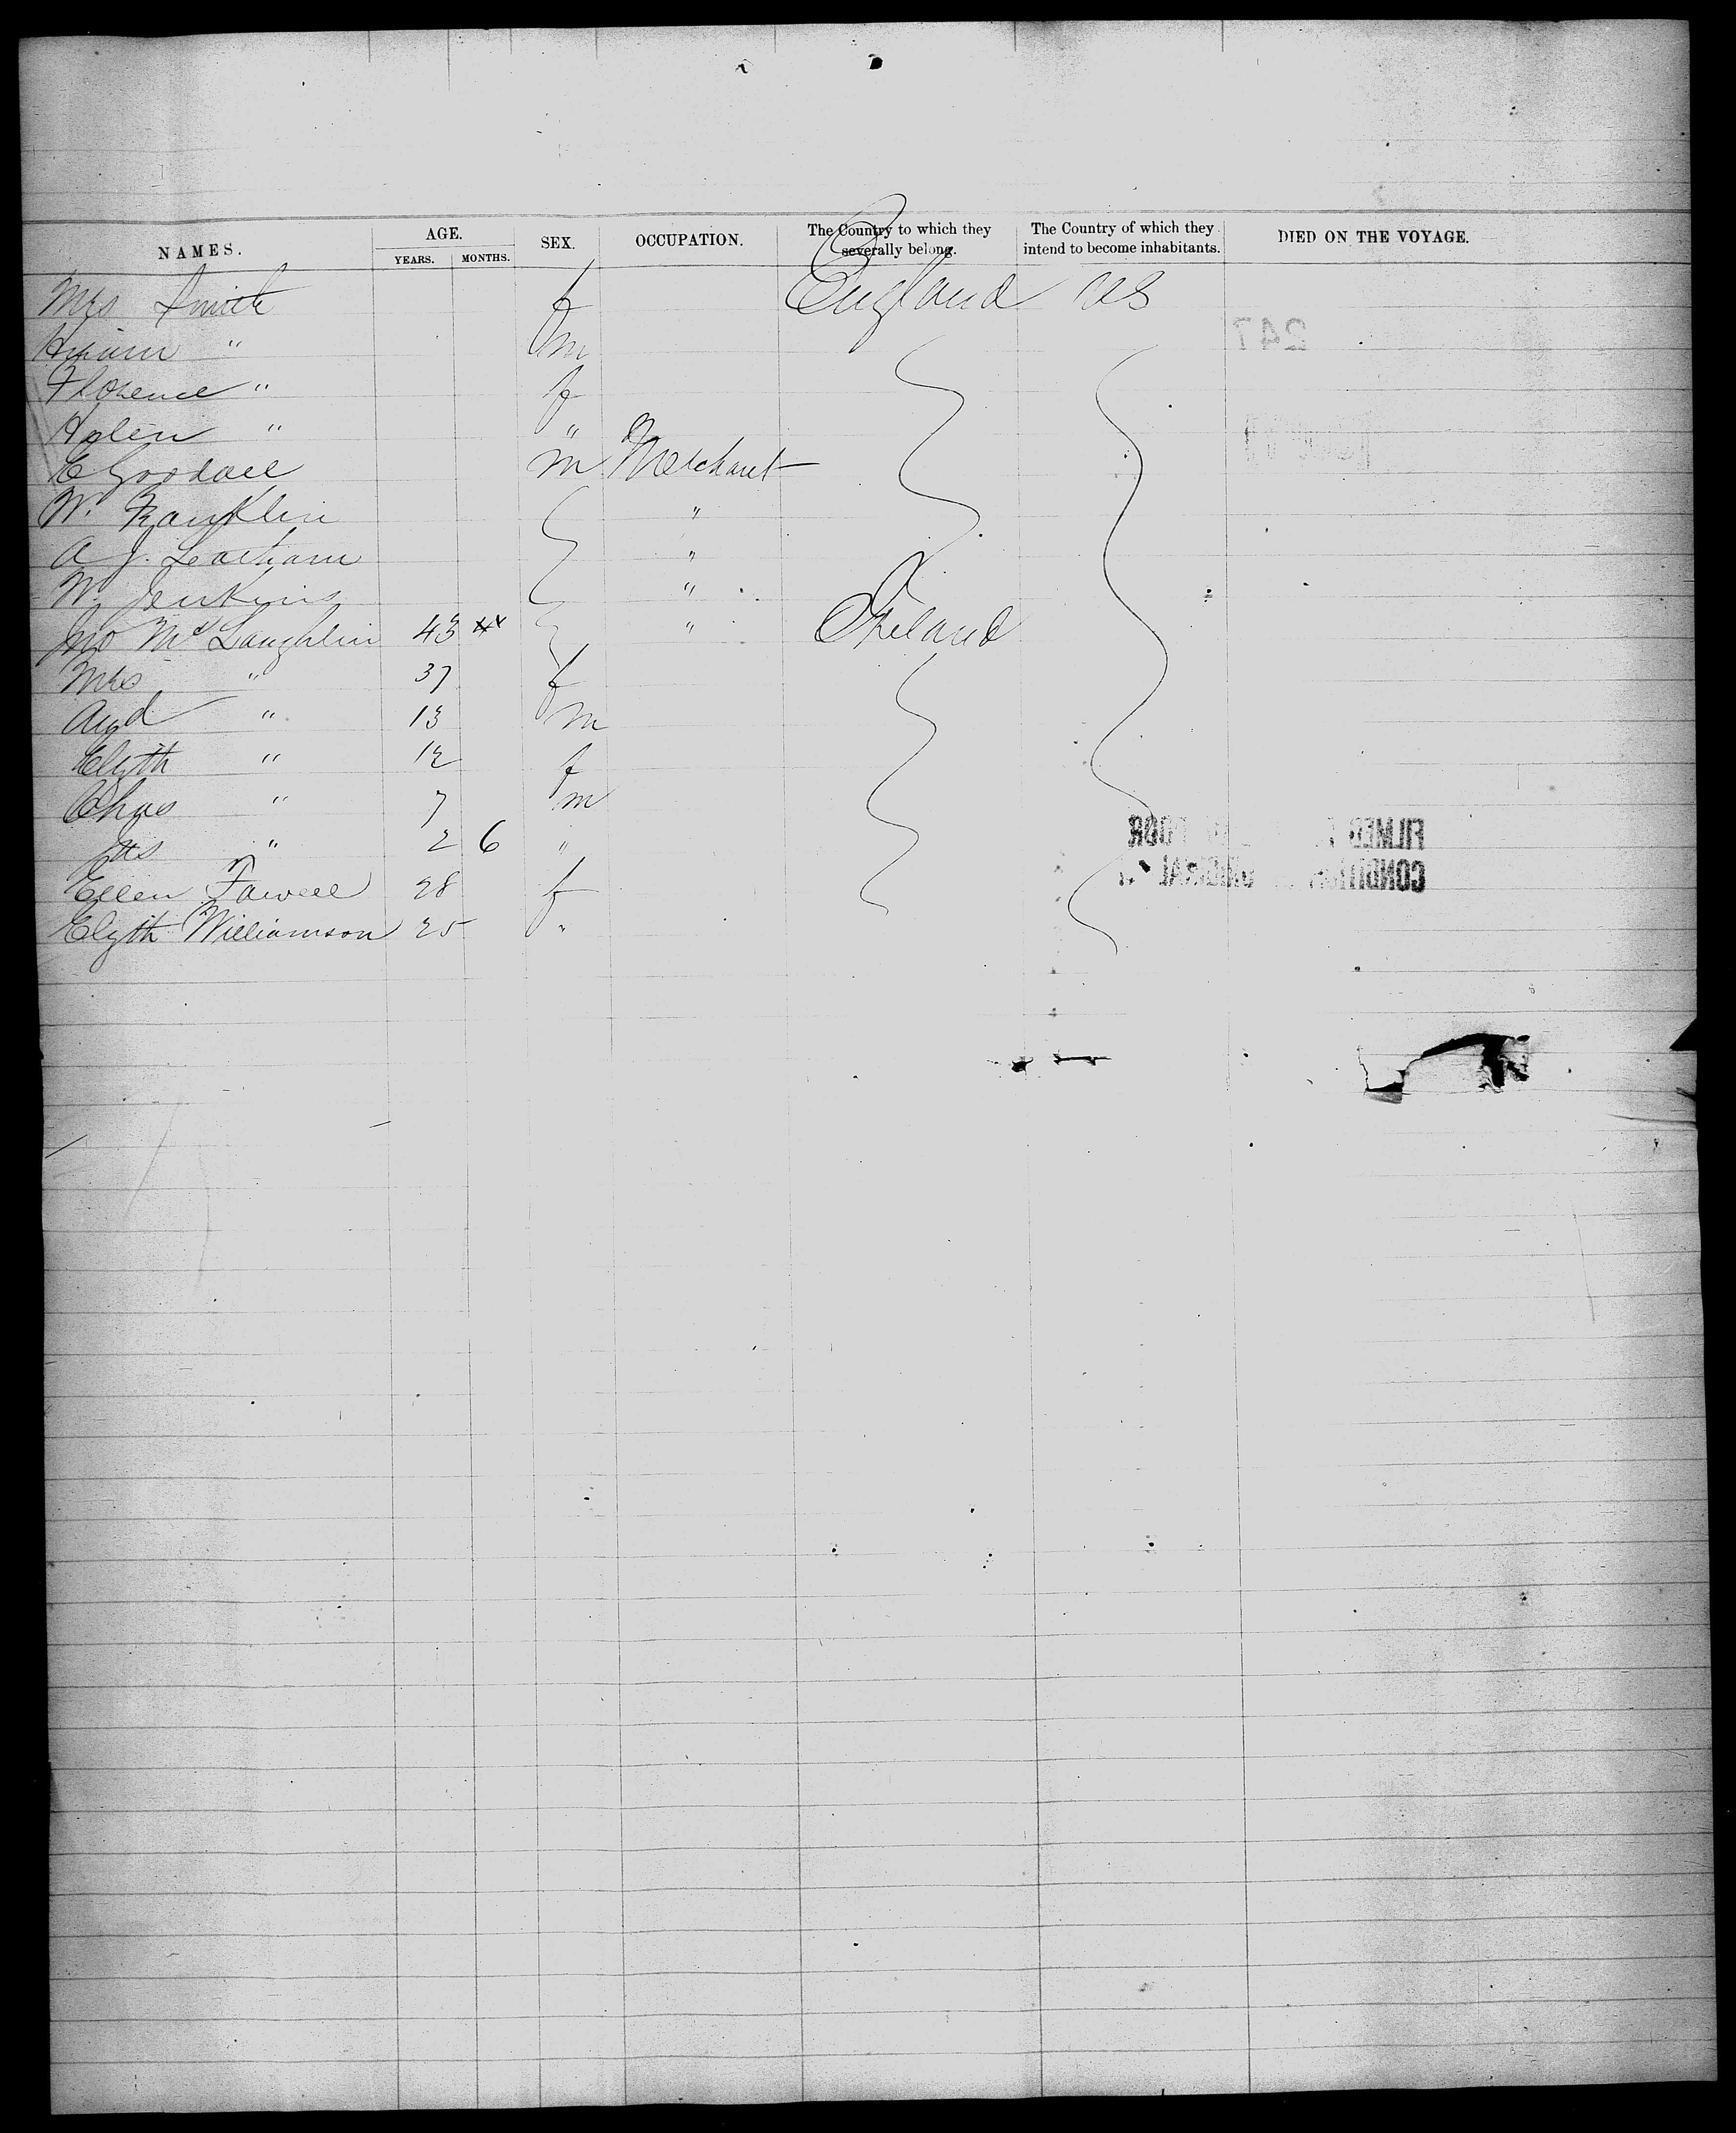 NAMES. AGE. SEX. OCCUPATION. The Country to which they severally belong. The Country of which they intend to become inhabitants. DIED ON THE VOYAGE.
YEARS. MONTHS.
Mrs Smith f England US
Hiram " m
247
Florence " f
Helen " "
E Goodall m Merchant
W. Franklin "
A J. Latham "
W. Jenkins "
Jno McLaughlin 43 " Ireland
Mrs " 37 f
" 13 m
Elizth " 12 f
Chas " 7 m
Jas " 2 6 "
FILMED POOR
CONDITION ORIGINAL
Ellen Fawell 28 f
Elizth Williamson 25 "